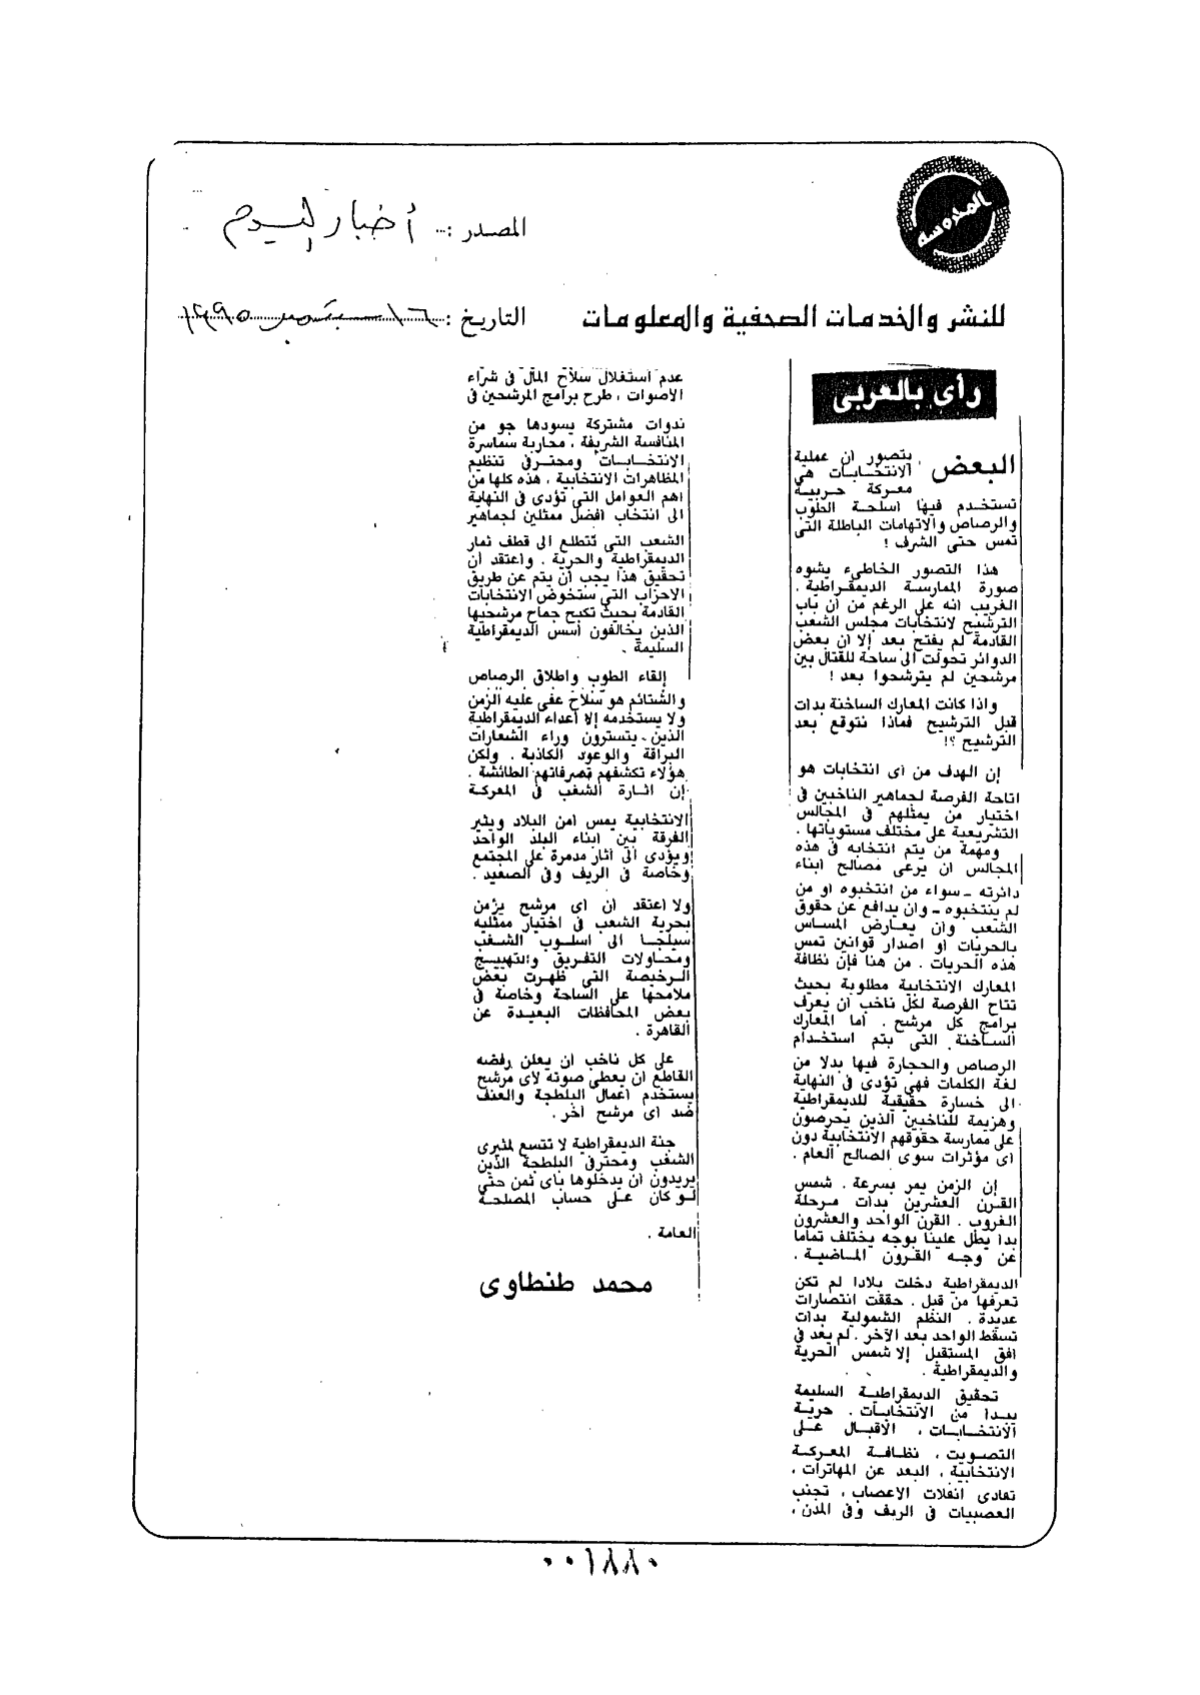 المحروسة
المصدر : أخبار اليوم
للنشر والخدمات الصحفية والمعلومات
التاريخ : ١٦ سبتمبر ١٩٩٥
رأى بالعربى
البعض يتصور ان عملية
الانتخابات هى
معركة حربية
تستخدم فيها أسلحة الطوب
والرصاص والاتهامات الباطلة التى
تمس حتى الشرف !
هذا التصور الخاطىء يشوه
صورة الممارسة الديمقراطية .
الغريب انه على الرغم من أن باب
الترشيح لانتخابات مجلس الشعب
القادمة لم يفتح بعد إلا ان بعض
الدوائر تحولت الى ساحة للقتال بين
مرشحين لم يترشحوا بعد !
واذا كانت المعارك الساخنة بدات
قبل الترشيح فماذا نتوقع بعد
الترشيح ؟!
إن الهدف من أى انتخابات هو
اتاحة الفرصة لجماهير الناخبين فى
اختيار من يمثلهم فى المجالس
التشريعية على مختلف مستوياتها .
ومهمة من يتم انتخابه فى هذه
المجالس ان يرعى مصالح ابناء
دائرته - سواء من انتخبوه او من
لم ينتخبوه - وان يدافع عن حقوق
الشعب وان يعارض المساس
بالحريات أو اصدار قوانين تمس
هذه الحريات . من هنا فإن نظافة
المعارك الانتخابية مطلوبة بحيث
تتاح الفرصة لكل ناخب أن يعرف
برامج كل مرشح . أما المعارك
الساخنة التى يتم استخدام
الرصاص والحجارة فيها بدلا من
لغة الكلمات فهى تؤدى فى النهاية
الى خسارة حقيقية للديمقراطية
وهزيمة للناخبين الذين يحرصون
على ممارسة حقوقهم الانتخابية دون
أى مؤثرات سوى الصالح العام .
إن الزمن يمر بسرعة . شمس
القرن العشرين بدات مرحلة
الغروب . القرن الواحد والعشرون
بدا يطل علينا بوجه يختلف تماما
عن وجه القرون الماضية .
الديمقراطية دخلت بلادا لم تكن
تعرفها من قبل . حققت انتصارات
عديدة . النظم الشمولية بدات
تسقط الواحد بعد الآخر . لم يعد فى
افق المستقبل إلا شمس الحرية
والديمقراطية .
تحقيق الديمقراطية السليمة
يبدا من الانتخابات . حرية
الانتخابات ، الاقبال على
التصويت ، نظافة المعركة
الانتخابية ، البعد عن المهاترات ،
تفادى انفلات الاعصاب ، تجنب
العصبيات فى الريف وفى المدن ،
عدم استغلال سلاح المال فى شراء
الاصوات ، طرح برامج المرشحين فى
ندوات مشتركة يسودها جو من
المنافسة الشريفة ، محاربة سماسرة
الانتخابات ومحترفى تنظيم
المظاهرات الانتخابية ، هذه كلها من
اهم العوامل التى تؤدى فى النهاية
الى انتخاب أفضل ممثلين لجماهير
الشعب التى تتطلع الى قطف ثمار
الديمقراطية والحرية . واعتقد أن
تحقيق هذا يجب أن يتم عن طريق
الاحزاب التى ستخوض الانتخابات
القادمة بحيث تكبح جماح مرشحيها
الذين يخالفون أسس الديمقراطية
السليمة .
إلقاء الطوب واطلاق الرصاص
والشتائم هو سلاح عفى عليه الزمن
ولا يستخدمه إلا أعداء الديمقراطية
الذين يتسترون وراء الشعارات
البراقة والوعود الكاذبة . ولكن
هؤلاء تكشفهم تصرفاتهم الطائشة .
إن اثارة الشغب فى المعركة
الانتخابية يمس أمن البلاد ويثير
الفرقة بين ابناء البلد الواحد
ويؤدى الى آثار مدمرة على المجتمع
وخاصة فى الريف وفى الصعيد .
ولا اعتقد ان اى مرشح يؤمن
بحرية الشعب فى اختيار ممثليه
سيلجا الى اسلوب الشغب
ومحاولات التفريق والتهييج
الرخيصة التى ظهرت بعض
ملامحها على الساحة وخاصة فى
بعض المحافظات البعيدة عن
القاهرة .
على كل ناخب ان يعلن رفضه
القاطع ان يعطى صوته لأى مرشح
يستخدم أعمال البلطجة والعنف
ضد اى مرشح اخر .
جنة الديمقراطية لا تتسع لمثيرى
الشغب ومحترفى البلطجة الذين
يريدون ان يدخلوها بأى ثمن حتى
لو كان على حساب المصلحة
العامة .
محمد طنطاوى
٠٠١٨٨٠